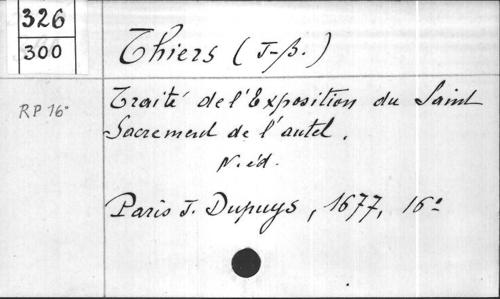 326
300
Thiers (J-B.)
RP 16°
Traité de l'Exposition du Saint
Sacrement de l'autel.
N. éd.
Paris J. Dupuys, 1677, 16°